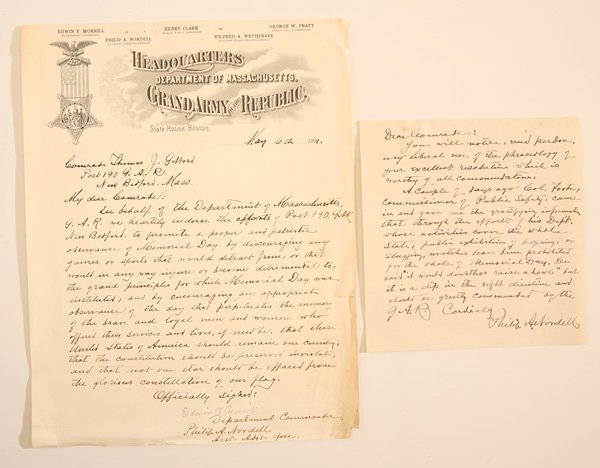 EDWIN F. MORRILL
PHILIP A. NORDELL
HENRY CLARK
WILFRED A. WETHERBEE
GEORGE W. PRATT
HEADQUARTERS
DEPARTMENT OF MASSACHUSETTS,
GRAND ARMY OF THE REPUBLIC,
State House, Boston,
May
Comrade Thomas J. Gifford
Post 190 G. A. R.
New Bedford, Mass.
My dear Comrade:
In behalf of the Department of Massachusetts,
G. A. R. we heartily endorse the efforts of Post 190, G.A.R.
New Bedford, to promote a proper and patriotic
observance of Memorial Day by discouraging any
games or sports that would detract from, or that
would in any way injure or become detrimental to,
the grand principles for which Memorial Day was
instituted, and by encouraging an appropriate
observance of the day that perpetuates the memory
of the brave and loyal men and women who
offered their services and lives, if need be, that these
United States of America should remain one country,
that the constitution should be preserved inviolate,
and that not one star should be effaced from
the glorious constellation of our flag.
Officially signed:
Edwin
Department Commander
Philip A. Nordell
Asst. Adjt. Gen.
Dear Comrade:
You will notice, and pardon,
my liberal use of the phraseology of
your excellent resolution which is
worthy of all commendation.
A couple of days ago Col. Foote,
Commissioner of Public Safety, came
in and gave me the gratifying information
that through the efforts of his Dept.
whose activities cover the whole
State, public exhibitions of boxing, or
slugging, matches have been prohibited
for the week of Memorial Day,
said it would doubtless "raise a howl" but
it is a step in the right direction and
should be greatly commended by the
G. A. R. Cordially
Philip A. Nordell